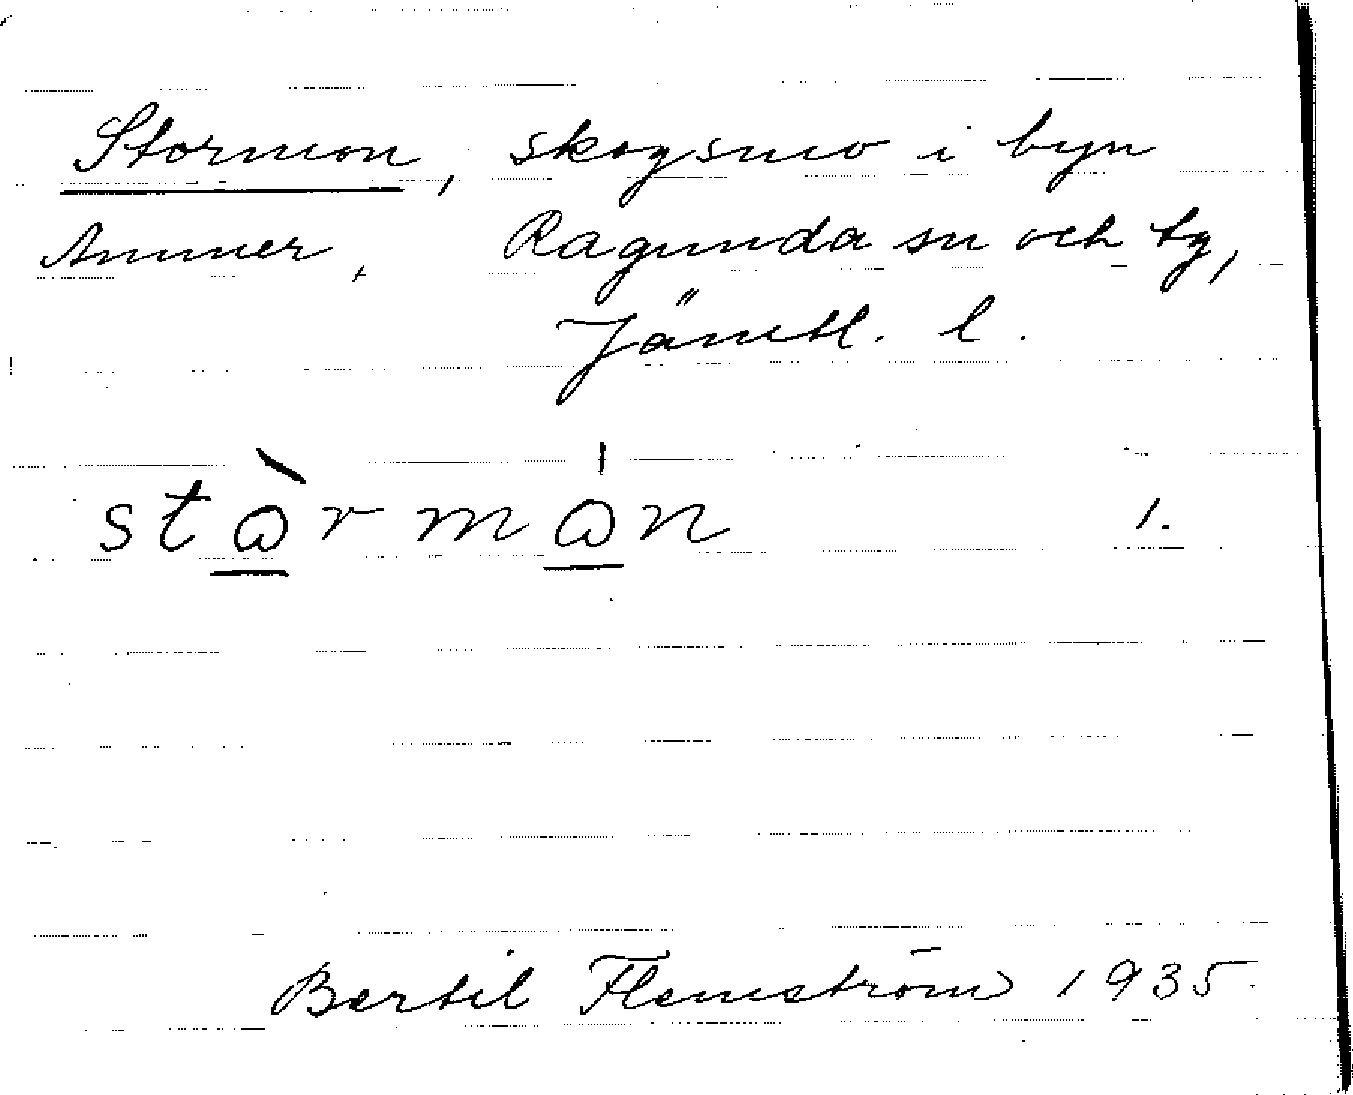 Stormon, skogsmo i byn
Ammer, Ragunda sn och tg,
Jämtl. l.
stɷ̀rmɷ̍n 1.
Bertil Flemström 1935.